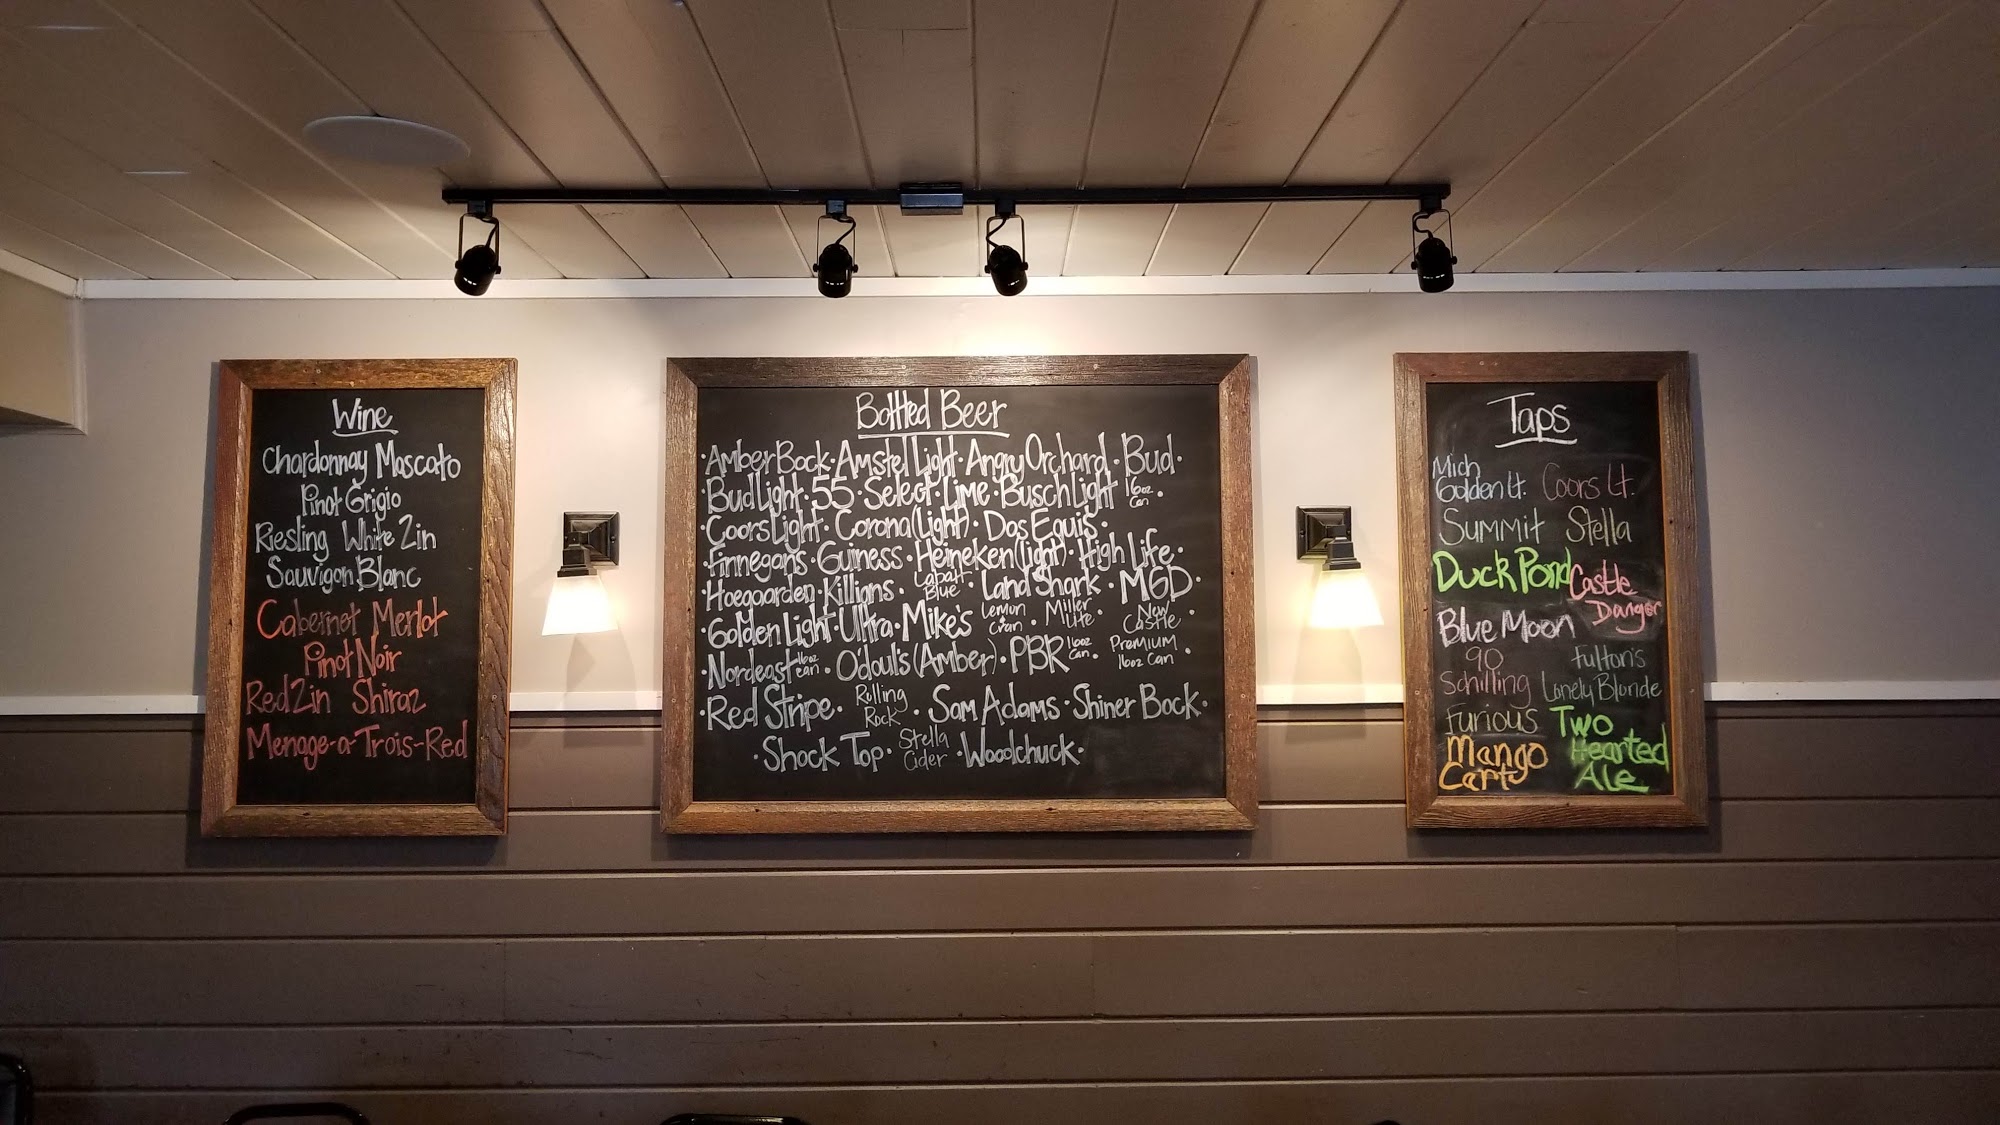 Wine
Chardonnay Moscato
Pinot Grigio
Riesling White Zin
Sauvignon Blanc
Cabernet Merlot
Pinot Noir
Red Zin Shiraz
Menage-a-Trois-Red
Bottled Beer
·Amber Bock·Amstel Light·Angry Orchard·Bud·
·Bud Light·55·Select·Lime·Busch Light 16oz Can·
·Coors Light·Corona(Light)·Dos Equis·
·Finnegans·Guiness·Heineken(light)·High Life·
·Hoegaarden·Killians·Labatt Blue·Land Shark·MGD·
·Golden Light·Ultra·Mike's Lemon Cran·Miller Lite·New Castle
·Nordeast 16oz can·O'doul's(Amber)·PBR 16oz Can·Premium 16oz Can
·Red Stripe·Rolling Rock·Sam Adams·Shiner Bock·
·Shock Top·Stella Cider·Woodchuck·
Taps
Mich Golden Lt. Coors Lt.
Summit Stella
Duck Pond Castle Danger
Blue Moon
90 Schilling Fulton's Lonely Blonde
Furious Two Hearted Ale
Mango Cart